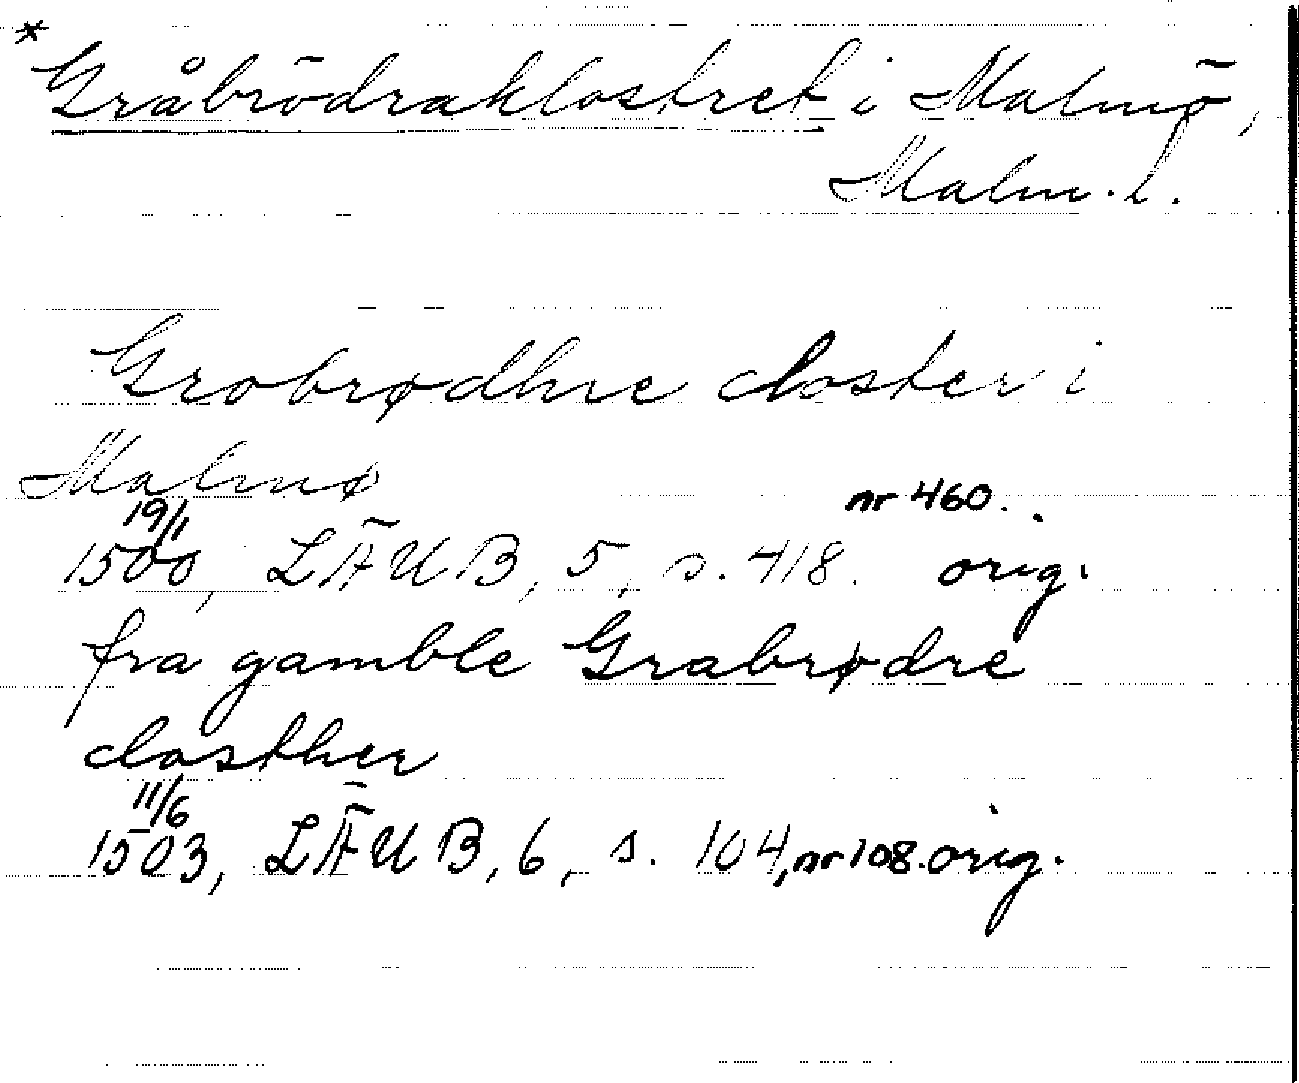 * Gråbrödraklostret i Malmö,
Malm. l.
Grobrødhre closter i
Malmø
19/1 nr 460.
1500, LÄUB, 5, s. 418. orig.
fra gamble Grabrødre
closther
11/6
1503, LÄUB, 6, s. 104, nr 108. orig.